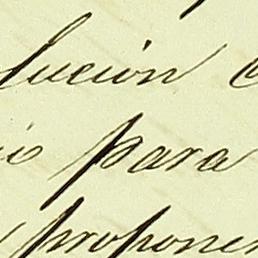 lucion
io para
proponer